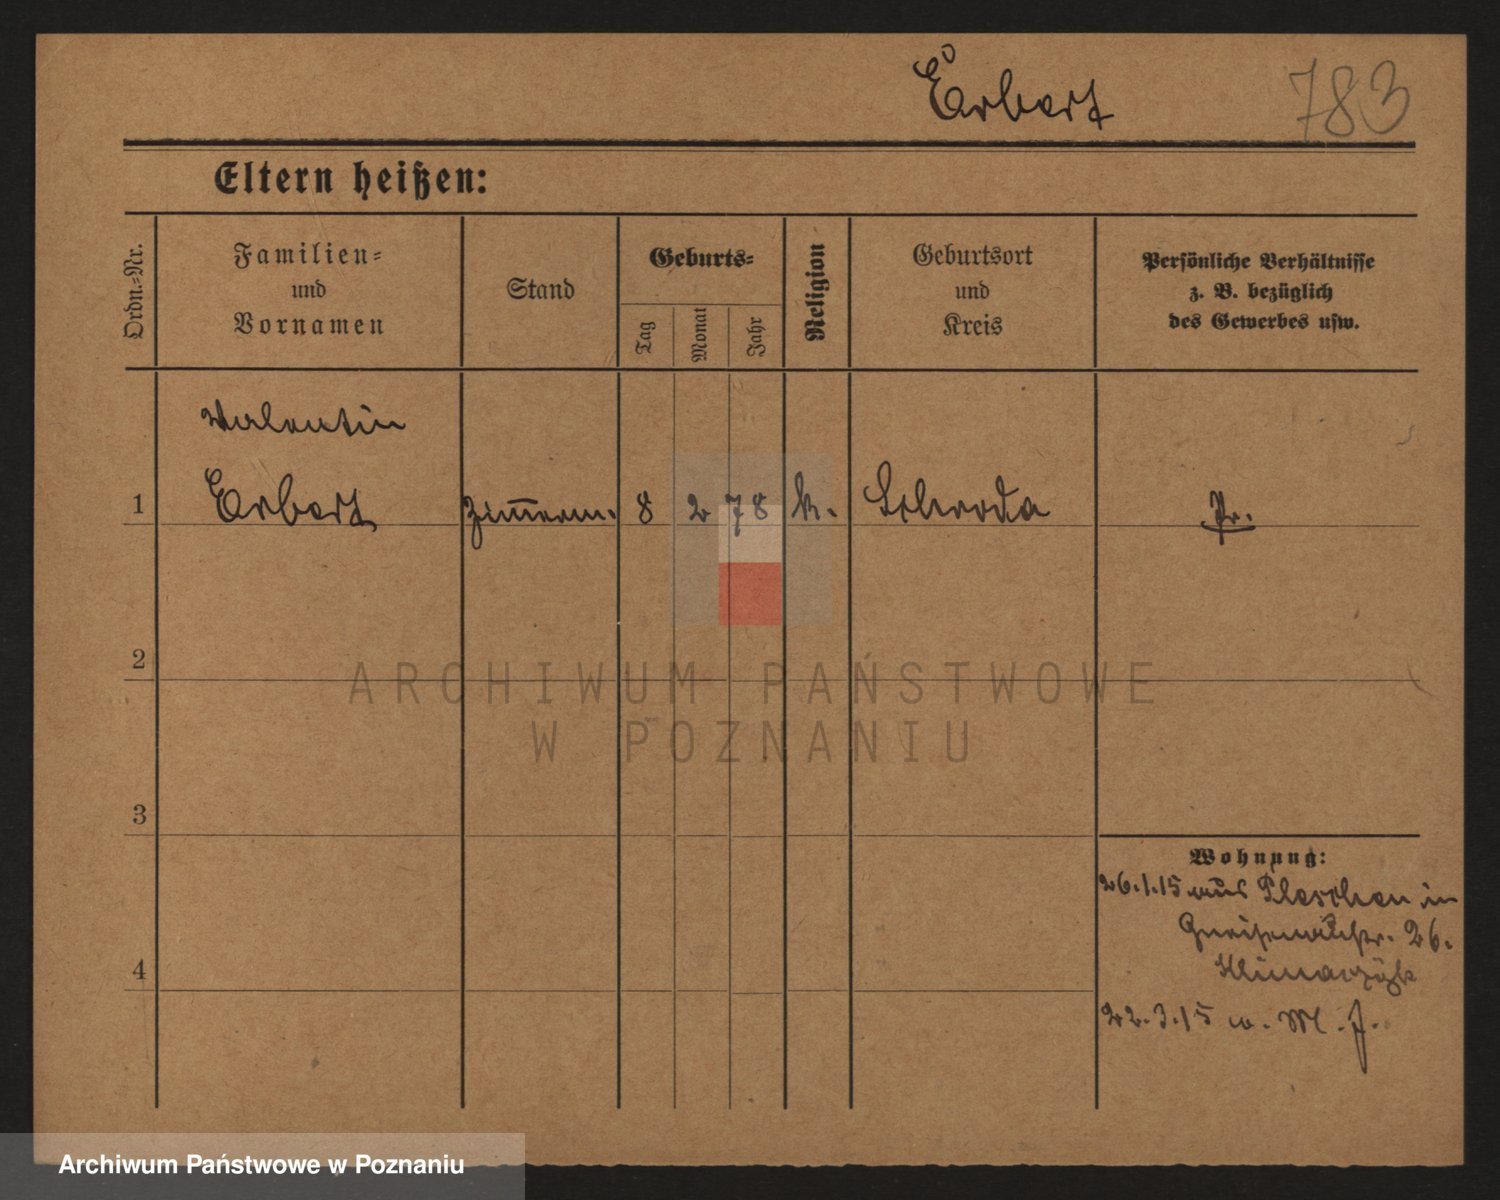 Erbert
783
Eltern heißen:
Ordn.-Nr.
Familien-
und
Vornamen
Stand
Geburts-
Tag
Monat
Jahr
Religion
Geburtsort
und
Kreis
Persönliche Verhältnisse
z. B. bezüglich
des Gewerbes usw.
Valentin
1 Erbert Zimmerm. 8 2 78 k. Schroda Pr.
2
3
4
Wohnung:
26.1.15 aus Pleschen in
Gneisenaustr. 26.
22.3.15 w. M. f.
ARCHIWUM PAŃSTWOWE
W POZNANIU
Archiwum Państwowe w Poznaniu